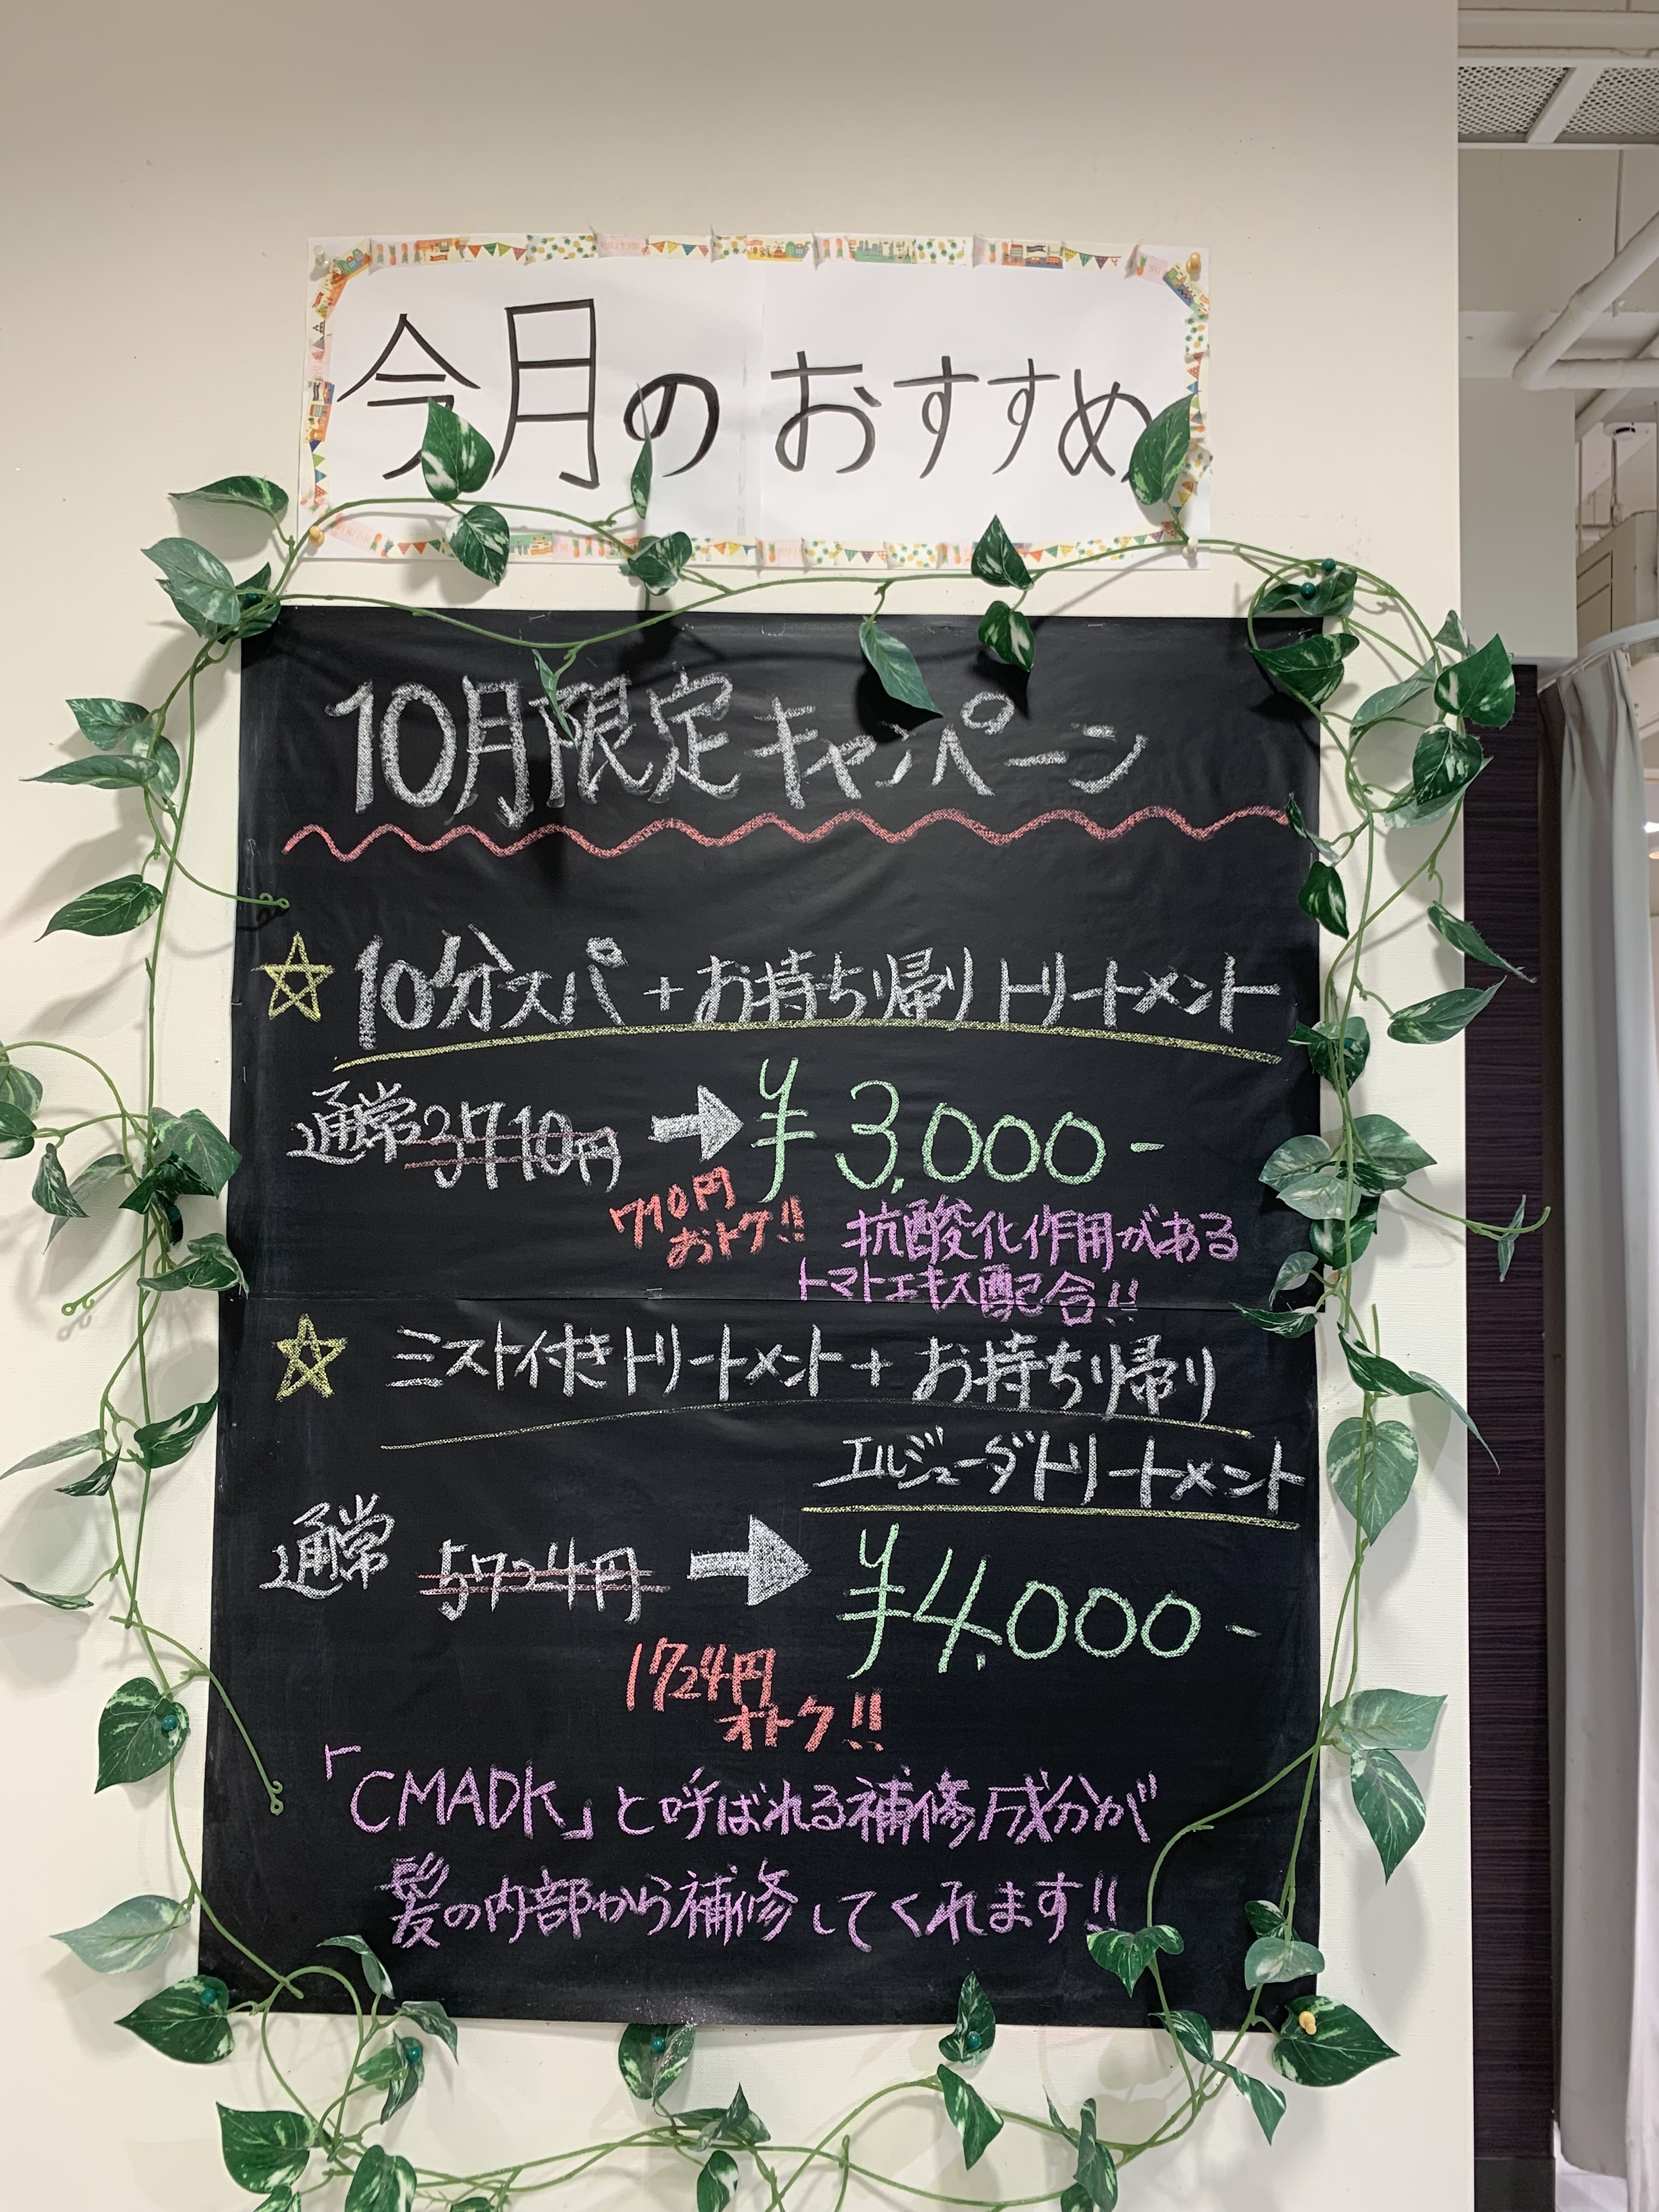 今月のおすすめ
10月限定キャンペーン
☆ 10分スパ + お持ち帰りトリートメント
通常3710円 ➡ ¥3,000-
710円
おトク!!
抗酸化作用がある
トマトエキス配合!!
☆ ミスト付きトリートメント + お持ち帰り
エルジューダトリートメント
通常 5724円 ➡ ¥4,000-
1724円
オトク!!
「CMADK」と呼ばれる補修成分が
髪の内部から補修してくれます!!